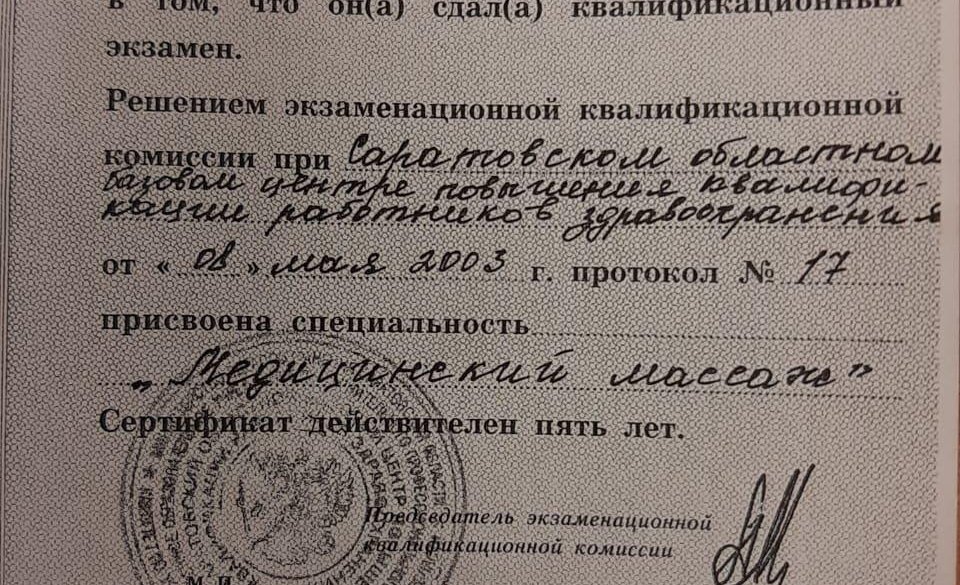 в том, что он(а) сдал(а) квалификационный
экзамен.
Решением экзаменационной квалификационной
комиссии при Саратовском областном
базовом центре повышения квалифи-
кации работников здравоохранения
от « 08 » мая 2003 г. протокол № 17
присвоена специальность
„Медицинский массаж”
Сертификат действителен пять лет.
Председатель экзаменационной
квалификационной комиссии
М. П.